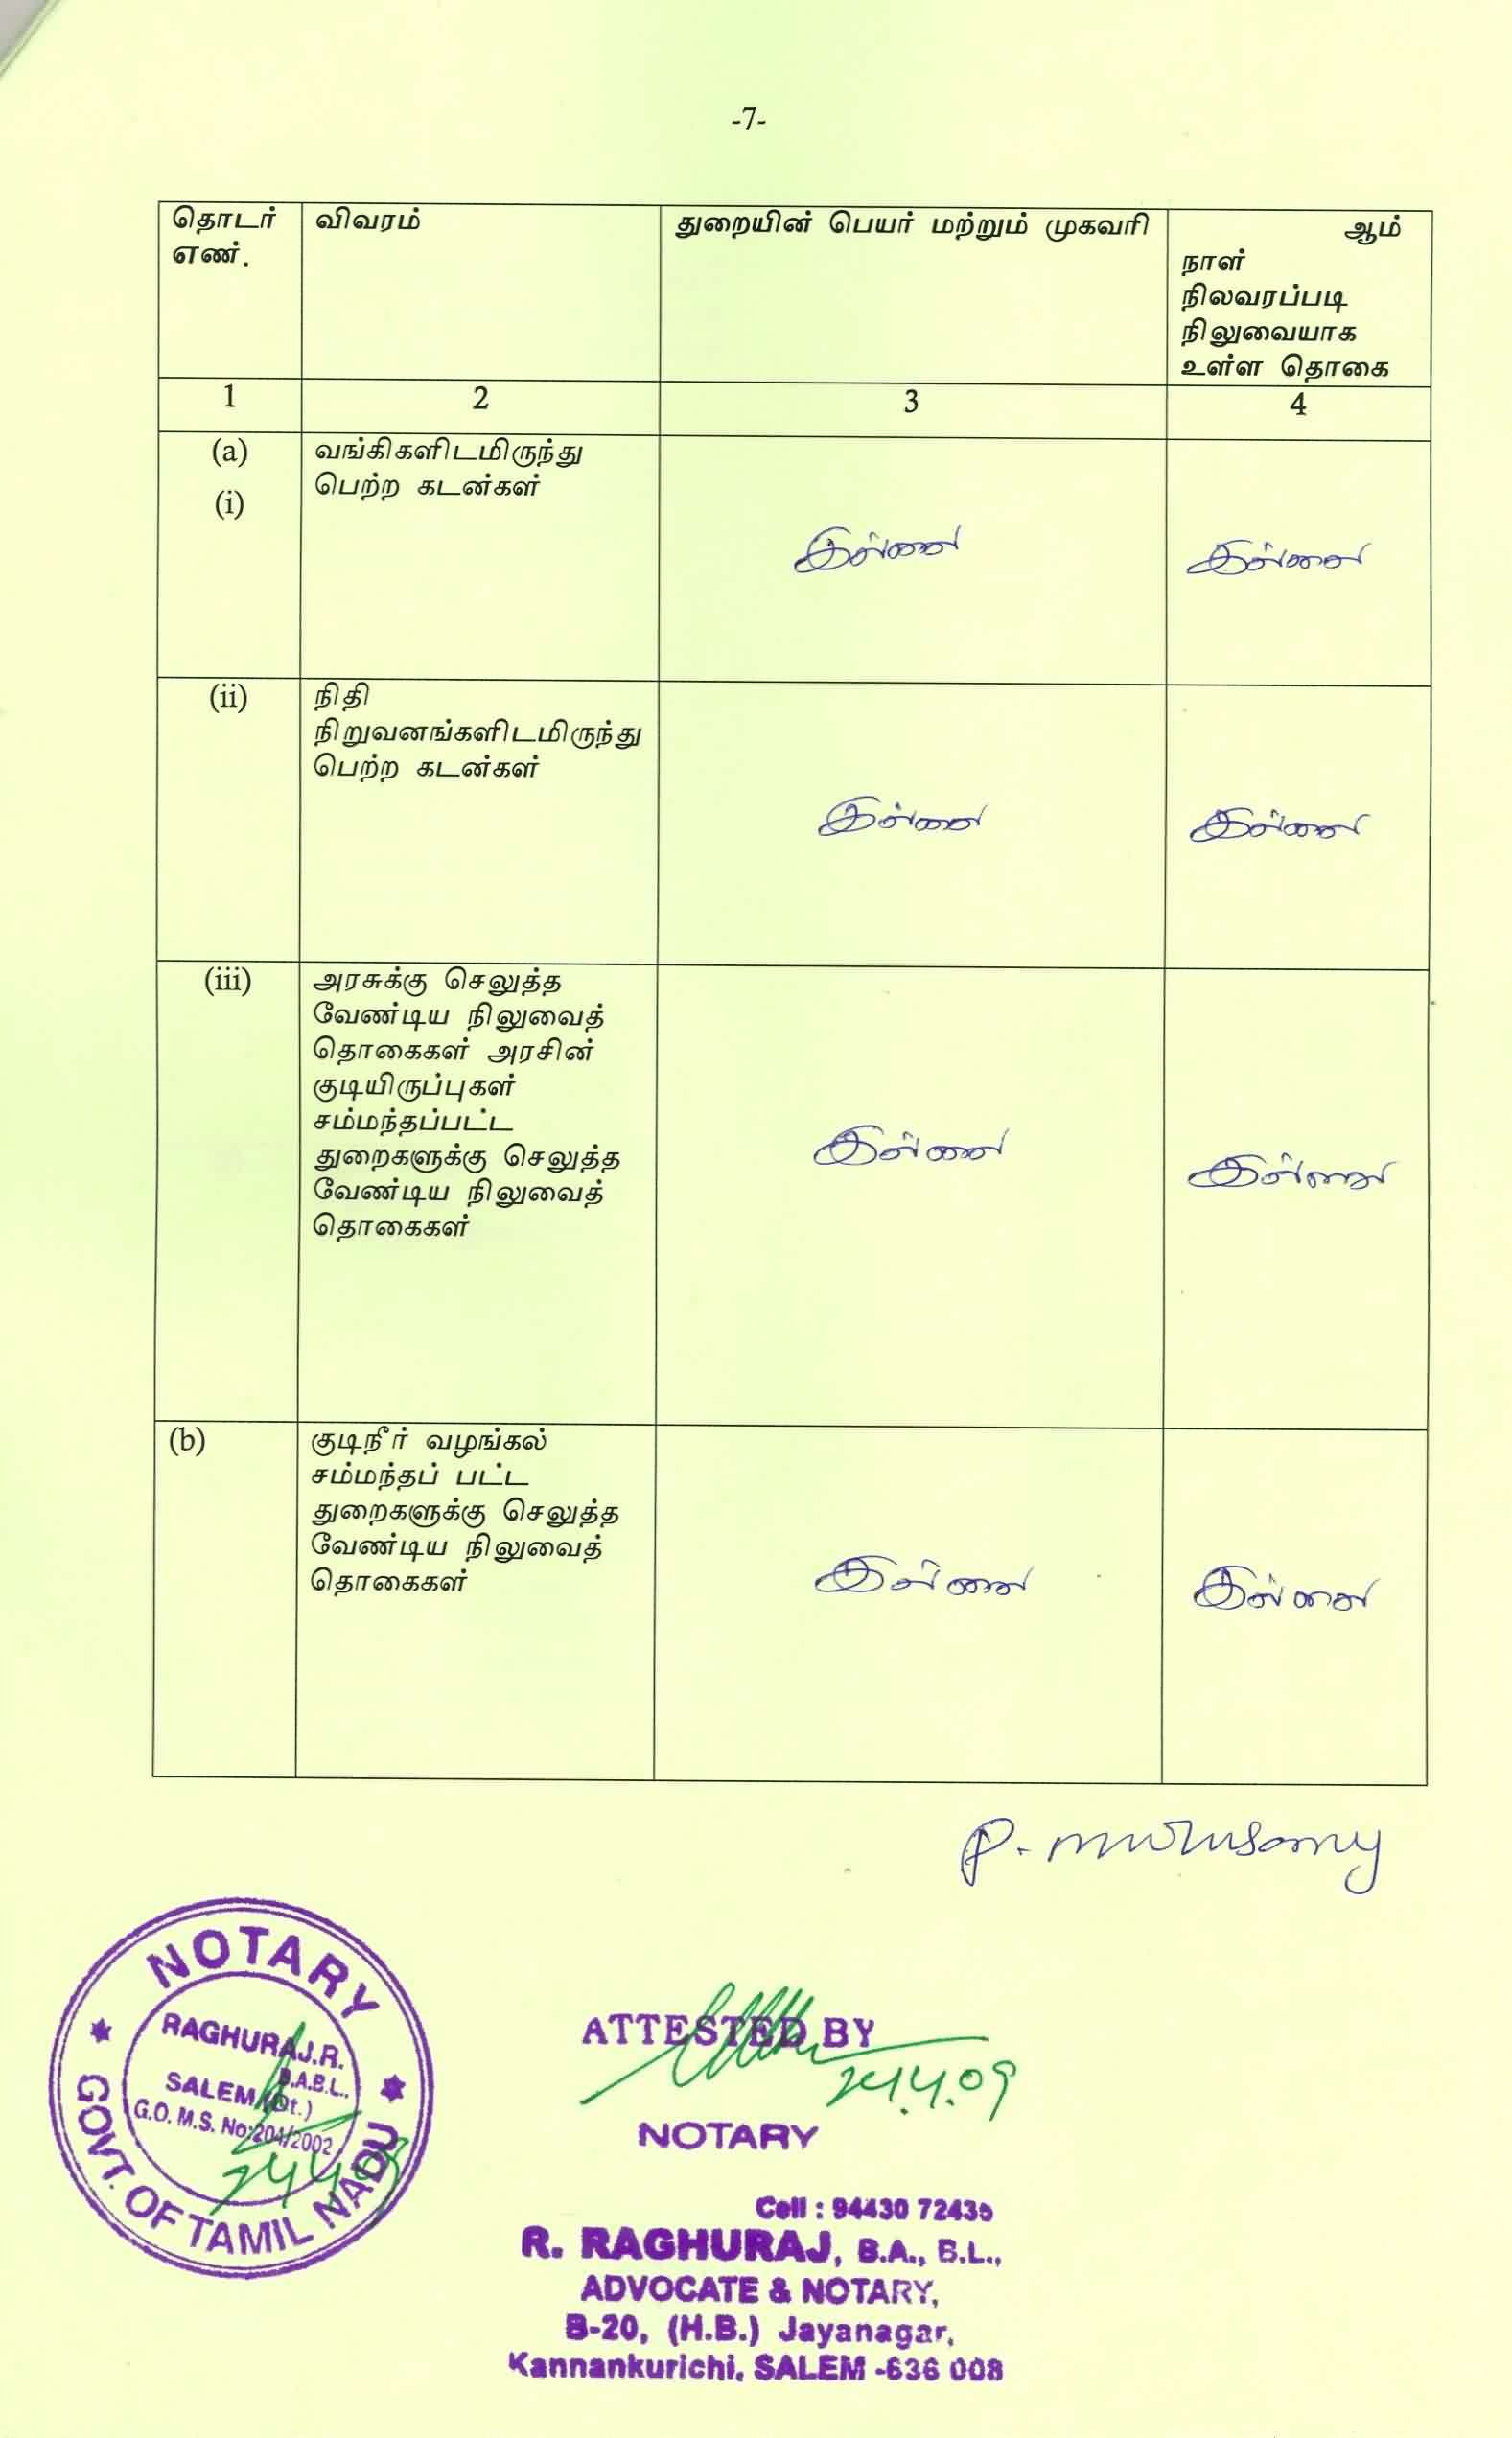 -7-
தொடர்
எண்.
விவரம்
துறையின் பெயர் மற்றும் முகவரி
ஆம்
நாள்
நிலவரப்படி
நிலுவையாக
உள்ள தொகை
1
2
3
4
(a)
(i)
வங்கிகளிடமிருந்து
பெற்ற கடன்கள்
இல்லை
இல்லை
(ii)
நிதி
நிறுவனங்களிடமிருந்து
பெற்ற கடன்கள்
இல்லை
இல்லை
(iii)
அரசுக்கு செலுத்த
வேண்டிய நிலுவைத்
தொகைகள் அரசின்
குடியிருப்புகள்
சம்மந்தப்பட்ட
துறைகளுக்கு செலுத்த
வேண்டிய நிலுவைத்
தொகைகள்
இல்லை
இல்லை
(b)
குடிநீர் வழங்கல்
சம்மந்தப் பட்ட
துறைகளுக்கு செலுத்த
வேண்டிய நிலுவைத்
தொகைகள்
இல்லை
இல்லை
P. Murusamy
NOTARY
RAGHURAJ.R.
B.A.B.L.,
SALEM (Dt.)
G.O. M.S. No:204/2002
GOVT. OF TAMIL NADU
24.4.09
ATTESTED BY
24.4.09
NOTARY
Cell : 94430 72435
R. RAGHURAJ, B.A., B.L.,
ADVOCATE & NOTARY,
B-20, (H.B.) Jayanagar,
Kannankurichi, SALEM -636 008